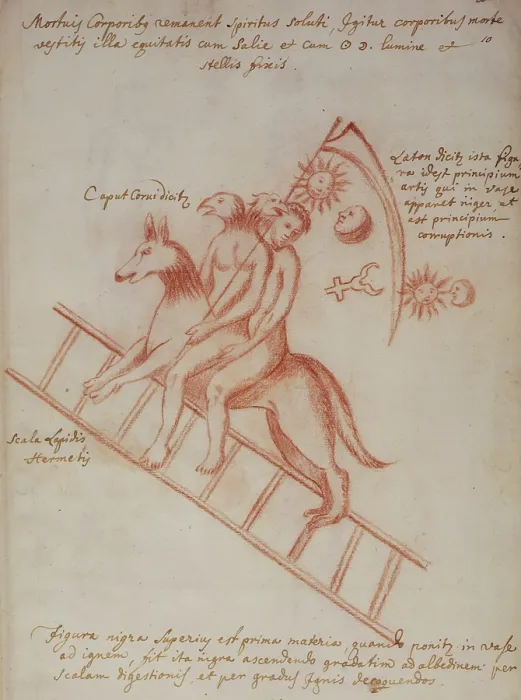 Mortuis Corporibq remanent Spiritus Soluti, Igitur corporibus morte
vestitis illa equitatis cum Salie et cum ☉ ☽. lumine et 10
stellis fixis.
Laton dicitz ista figu
ra idest principium
artis qui in vase
apparet niger, et
est principium
corruptionis.
Caput Corui dicitz
Scala Lapidis
Hermetis
Figura nigra superius est prima materia, quando ponitz in vase
ad ignem, fit ita nigra ascendendo gradatim ad albedinem per
scalam digestionis, et per gradus Ignis decoquendos.